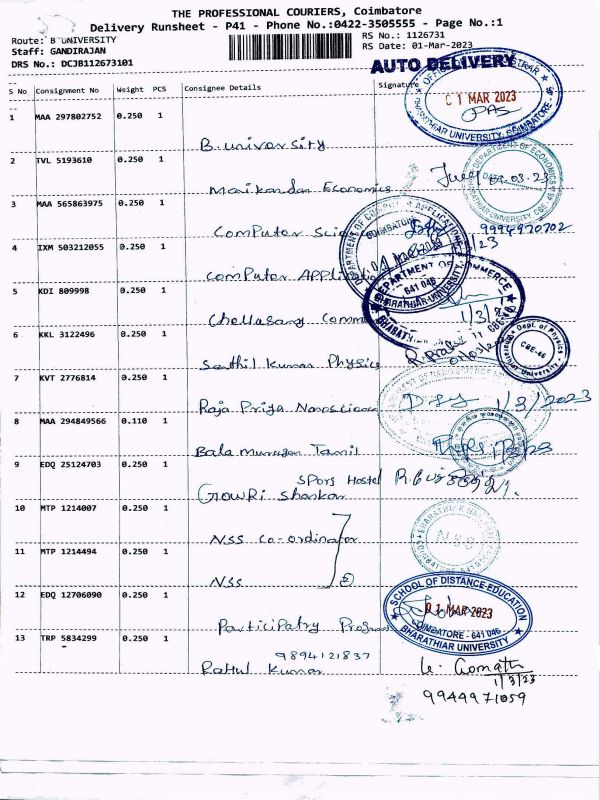 THE PROFESSIONAL COURIERS, Coimbatore
Delivery Runsheet - P41 - Phone No.:0422-3505555 - Page No.:1
Route: B UNIVERSITY
Staff: GANDIRAJAN
DRS No.: DCJB112673101
RS No.: 1126731
RS Date: 01-Mar-2023
AUTO DELIVERY
S No Consignment No Weight PCS Consignee Details Signature
1 MAA 297802752 0.250 1
B.university
01 MAR 2023
BHARATHIAR UNIVERSITY, COIMBATORE - 46
2 TVL 5193610 0.250 1
Manikandan Economics
DEPARTMENT OF ECONOMICS
BHARATHIAR UNIVERSITY CBE-46
3 MAA 565863975 0.250 1
Computer Scie
9994970702
DEPARTMENT OF COMPUTER APPLICATIONS
COIMBATORE
4 IXM 503212055 0.250 1
Computer Applicatio
01 MAR 2023
641 046
DEPARTMENT OF COMMERCE
BHARATHIAR UNIVERSITY
5 KDI 809998 0.250 1
Chellasamy Comm
6 KKL 3122496 0.250 1
Senthil Kumar Physics
Dept. of Physics
CBE-46
7 KVT 2776814 0.250 1
Raja Priya Nanoscience
1/3/2023
8 MAA 294849566 0.110 1
Bala murugan Tamil
9 EDQ 25124703 0.250 1
Spors Hostel
Gowri Shankar
10 MTP 1214007 0.250 1
NSS Co-ordinator
NSS
11 MTP 1214494 0.250 1
NSS
12 EDQ 12706090 0.250 1
Participatry Program
SCHOOL OF DISTANCE EDUCATION
01 MAR 2023
COIMBATORE - 641 046
BHARATHIAR UNIVERSITY
13 TRP 5834299 0.250 1
9894121837
Rahul Kumar
1/3/23
9944971059